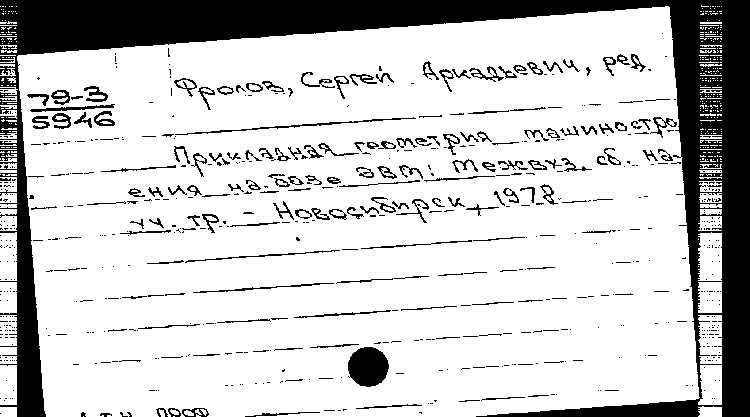 Фролов, Сергей Аркадьевич, ред.
79-3
5946
Прикладная геометрия машиностро
ения на базе ЭВМ: Межвуз. сб. на-
уч. тр. - Новосибирск, 1978
д.т.н. проф